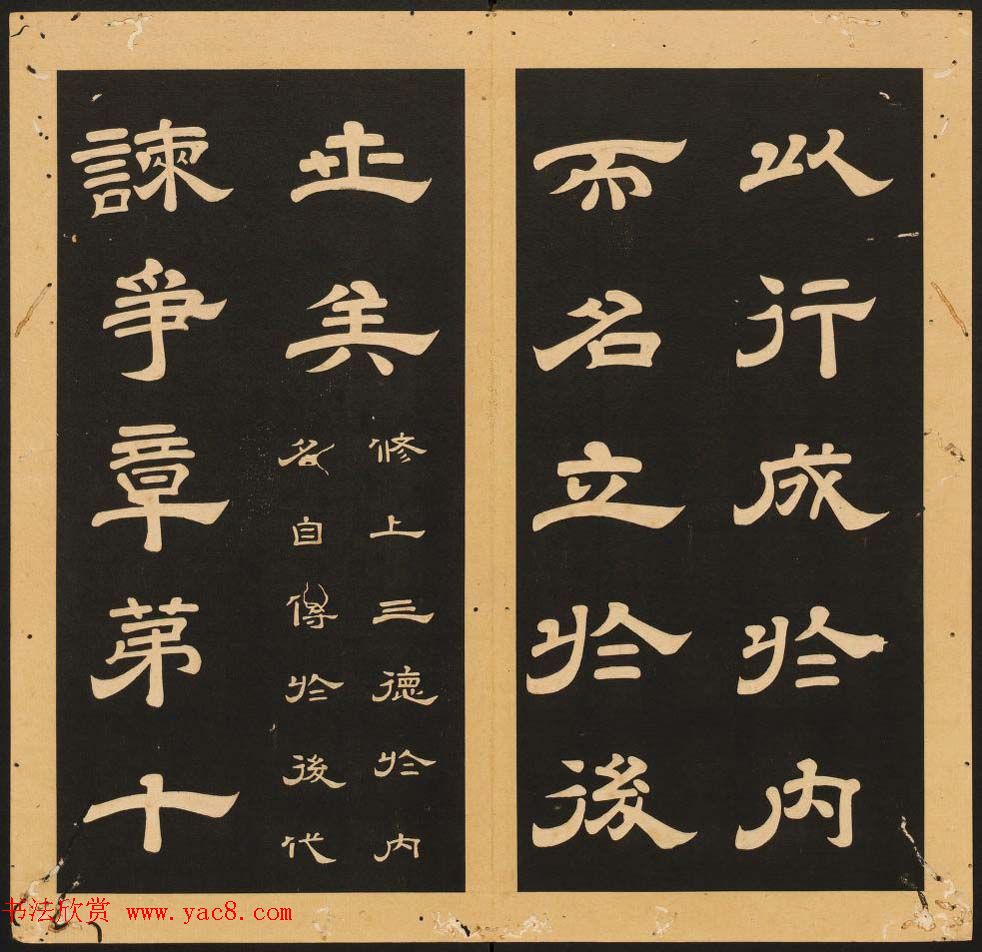 以行成於内
而名立於後
世矣
修上三德於内
名自傳於後代
諫爭章苐十
书法欣赏 www.yac8.com